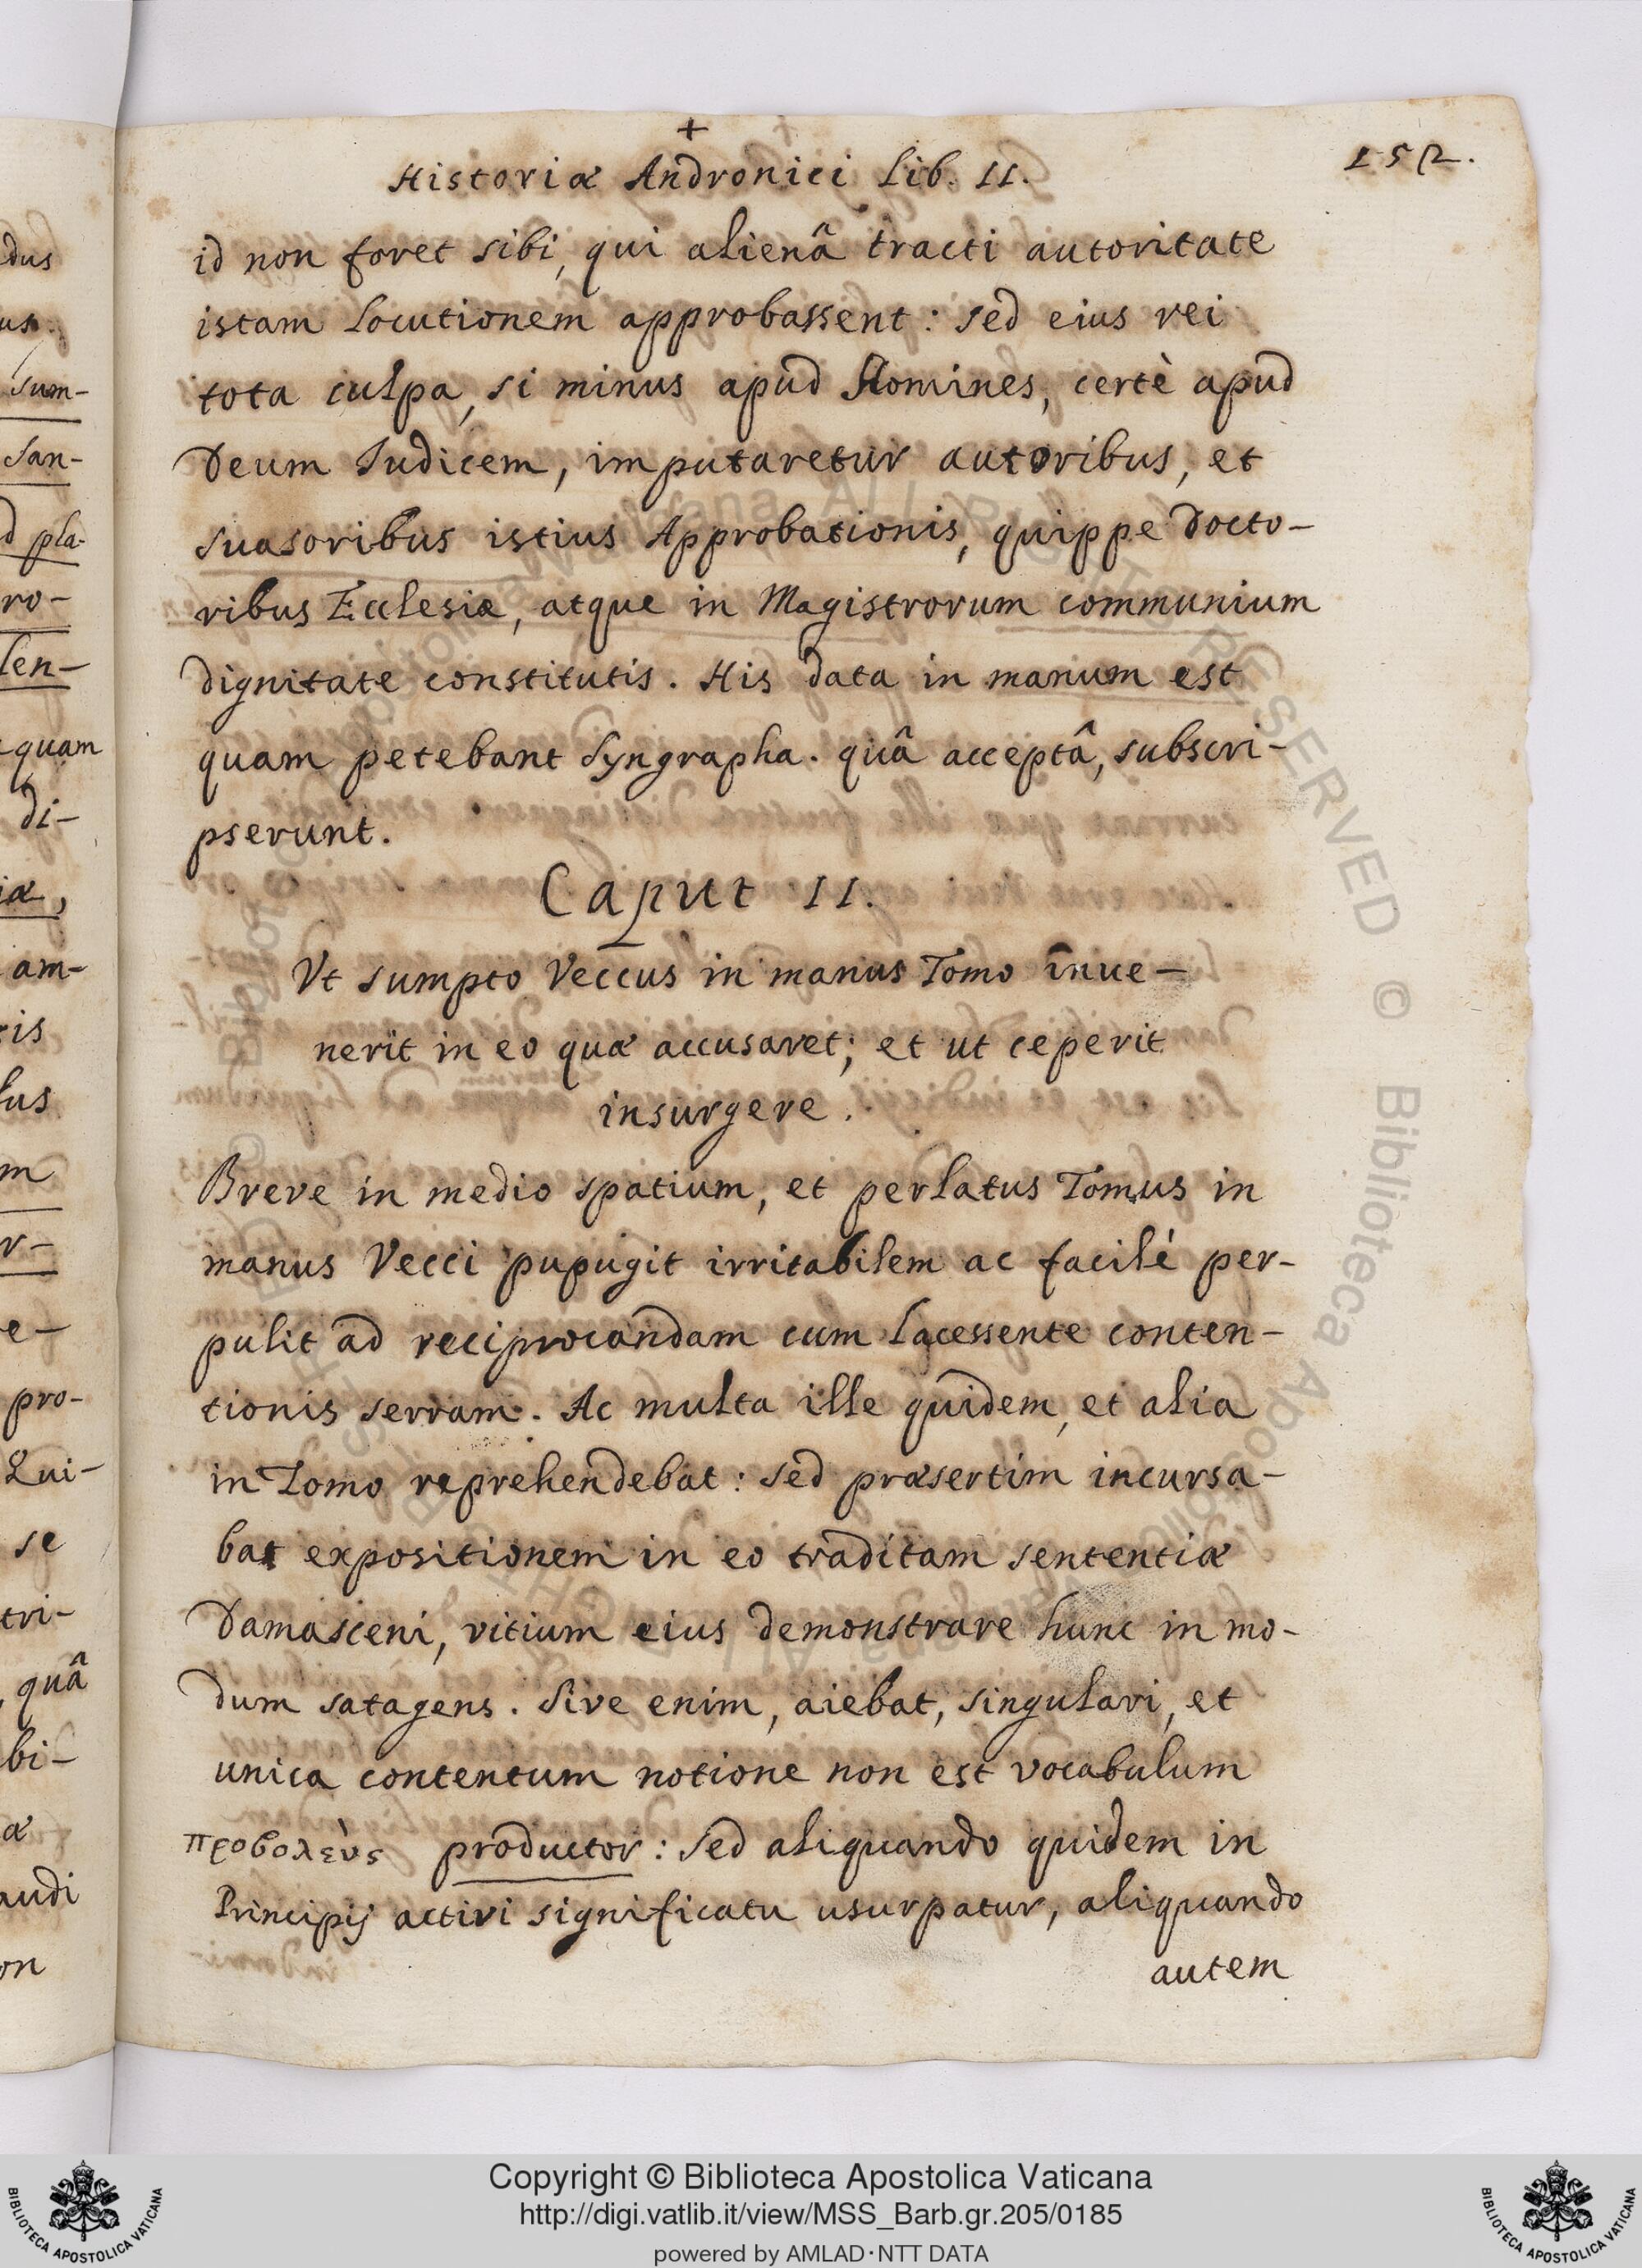 +
Historiæ Andronici Lib. II.
152.
id non foret sibi, qui alienâ tracti autoritate
istam Locutionem approbassent: sed eius rei
tota culpa, si minus apud Homines, certè apud
Deum Iudicem, imputaretur autoribus, et
suasoribus istius Approbationis, quippe Docto-
ribus Ecclesiæ, atque in Magistrorum communium
dignitate constitutis. His data in manum est
quam petebant Syngrapha. quâ acceptâ, subscri-
pserunt.
Caput II.
Vt sumpto Veccus in manus Tomo inue-
nerit in eo quæ accusaret; et ut ceperit
insurgere.
Breve in medio spatium, et perlatus Tomus in
manus Vecci pupugit irritabilem ac facilè per-
pulit ad reciprocandam cum Lacessente conten-
tionis serram. Ac multa ille quidem, et alia
in Tomo reprehendebat: sed præsertim incursa-
bat expositionem in eo traditam sententiæ
Damasceni, vitium eius demonstrare hunc in mo-
dum satagens. Sive enim, aiebat, singulari, et
unica contentum notione non est vocabulum
προβολεὺς productor: sed aliquando quidem in
Principij activi significatu usurpatur, aliquando
autem
dus
us.
sum-
san-
d pla-
ro-
len-
quam
di-
iæ,
am-
ris
lus
m
r-
e-
pro-
Qui-
se
tri-
, quâ
bi-
æ
audi
on
Copyright © Biblioteca Apostolica Vaticana
http://digi.vatlib.it/view/MSS_Barb.gr.205/0185
powered by AMLAD·NTT DATA
BIBLIOTECA APOSTOLICA VATICANA
BIBLIOTECA APOSTOLICA VATICANA